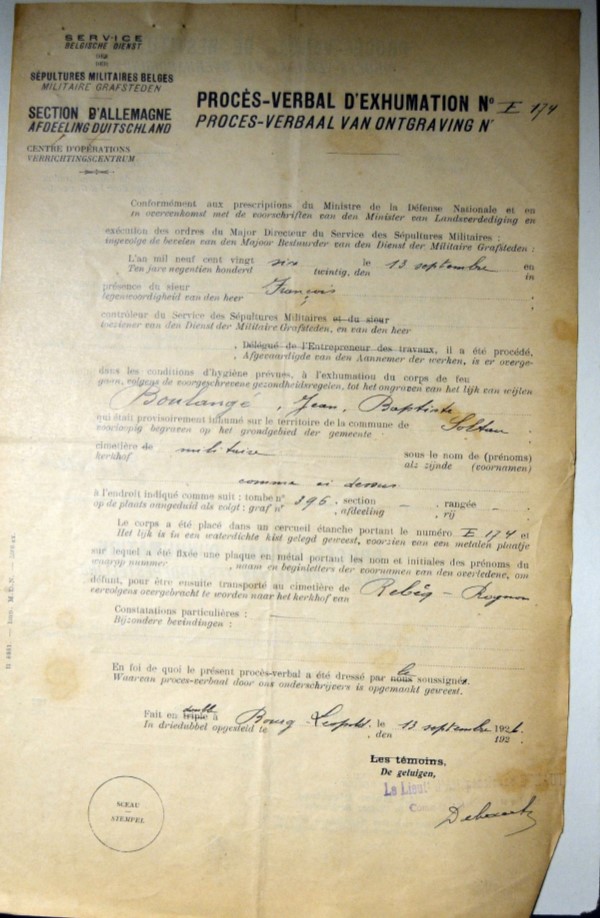 SERVICE
BELGISCHE DIENST
DES
DER
SÉPULTURES MILITAIRES BELGES
MILITAIRE GRAFSTEDEN
SECTION D'ALLEMAGNE
AFDEELING DUITSCHLAND
CENTRE D'OPÉRATIONS
VERRICHTINGSCENTRUM
PROCÈS-VERBAL D'EXHUMATION No E 174
PROCES-VERBAAL VAN ONTGRAVING Nr
Conformément aux prescriptions du Ministre de la Défense Nationale et en
in overeenkomst met de voorschriften van den Minister van Landsverdediging en
exécution des ordres du Major Directeur du Service des Sépultures Militaires :
ingevolge de bevelen van den Majoor Bestuurder van den Dienst der Militaire Grafsteden :
L'an mil neuf cent vingt six le 13 septembre en
Ten jare negentien honderd twintig, den in
présence du sieur François ,
tegenwoordigheid van den heer ,
contrôleur du Service des Sépultures Militaires et du sieur
toeziener van den Dienst der Militaire Grafsteden, en van den heer
, Délégué de l'Entrepreneur des travaux, il a été procédé,
, Afgevaardigde van den Aannemer der werken, is er overge-
dans les conditions d'hygiène prévues, à l'exhumation du corps de feu
gaan, volgens de voorgeschrevene gezondheidsregelen, tot het ongraven van het lijk van wijlen
Boulangé, Jean, Baptiste
qui était provisoirement inhumé sur le territoire de la commune de Soltau
voorloopig begraven op het grondgebied der gemeente
cimetière de militaire sous le nom de (prénoms)
kerkhof als zijnde (voornamen)
comme ci dessus
à l'endroit indiqué comme suit : tombe no 396 , section — , rangée — .
op de plaats aangeduid als volgt : graf nr , afdeeling , rij .
Le corps a été placé dans un cercueil étanche portant le numéro E 174 et
Het lijk is in een waterdichte kist gelegd geweest, voorzien van een metalen plaatje
sur lequel a été fixée une plaque en métal portant les nom et initiales des prénoms du
waarop nummer , naam en beginletters der voornamen van den overledene, om
défunt, pour être ensuite transporté au cimetière de Rebecq - Rognon
vervolgens overgebracht te worden naar het kerkhof van
Constatations particulières :
Bijzondere bevindingen :
En foi de quoi le présent procès-verbal a été dressé par nous le soussignés.
Waarvan proces-verbaal door ons onderschrijvers is opgemaakt geweest.
Fait en triple double à Bourg-Léopold, le 13 septembre 1926.
In driedubbel opgesteld te , den 192 .
Les témoins,
De getuigen,
Le Lieut
SCEAU
STEMPEL